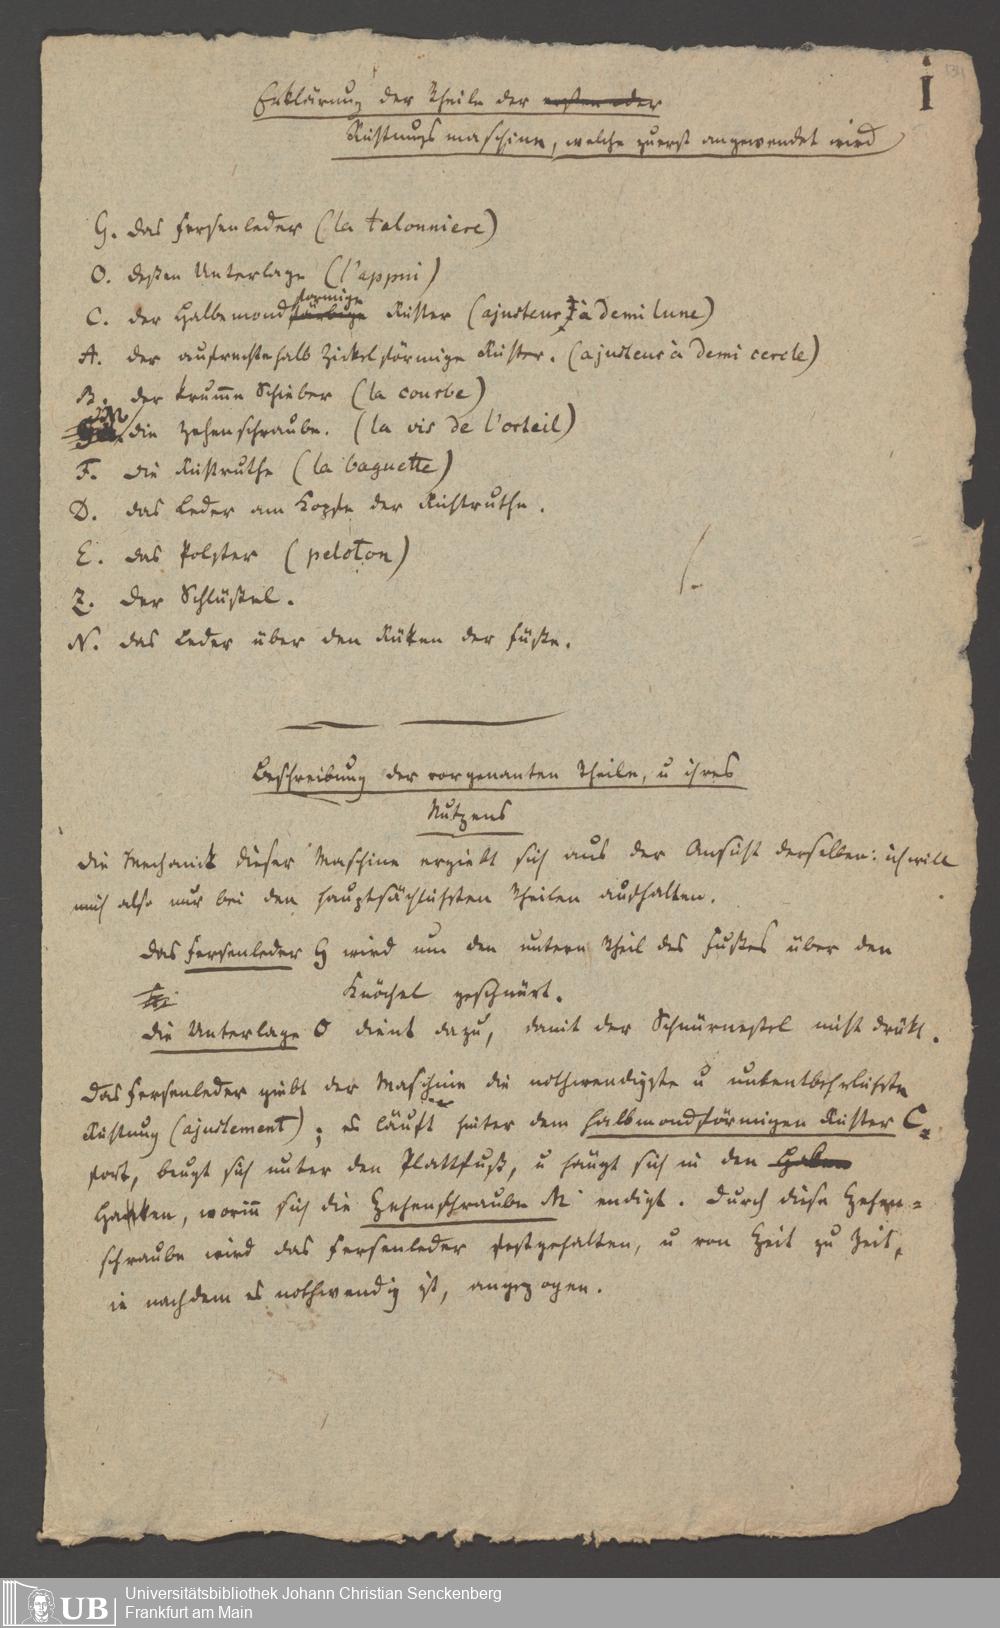 I
Erklärung der Theile der ersten oder
Richtungsmaschine, welche zuerst angewendet wird
G. das Fersenleder (la talonniere)
O. deßen Unterlage (l'appui)
förmige
C. der Halbemond färbige Richter (ajusteur à demi lune)
A. der aufrechtehalb Zirkelförmige Richter. (ajusteur à demi cercle)
B. der krum̅e Schieber (la courbe)
M die Zehenschraube. (la vis de l'orteil)
F. die Richtruthe (la baguette)
D. das Leder am Kopfe der Richtruthe.
E. das Polster (peloton)
Z. der Schlüßel.
N. das Leder über den Rüken der Füße.
Beschreibung der vorgenanten Theile, u ihres
Nutzens
Die Mechanick dieser Maschine ergiebt sich aus der Ansicht derselben: ich will
mich also nur bei den hauptsächlichsten Theilen aufhalten.
Das Fersenleder G wird um den untern Theil des Fußes über den
Knöchel geschnürt.
Die Unterlage O dient dazu, damit der Schnürnestel nicht drükt.
Das Fersenleder giebt der Maschine die nothwendigste u unentbehrlichste
Richtung (ajustement); es läuft hinter dem halbmondförmigen Richter C.
fort, beugt sich unter den Plattfuß, u hängt sich in den Haken
Hacken, worin̅ sich die Zehenschraube M endigt. Durch diese Zehen=
schraube wird das Fersenleder festgehalten, u von Zeit zu Zeit,
je nachdem es nothwendig ist, angezogen.
UB
Universitätsbibliothek Johann Christian Senckenberg
Frankfurt am Main